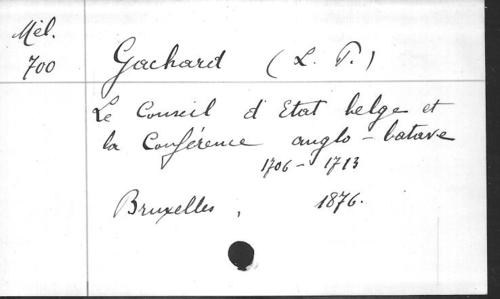 Mél.
700
Gachard (L. P.)
Le Conseil d'Etat belge et
la Conférence anglo-batave
1706-1713
Bruxelles, 1876.